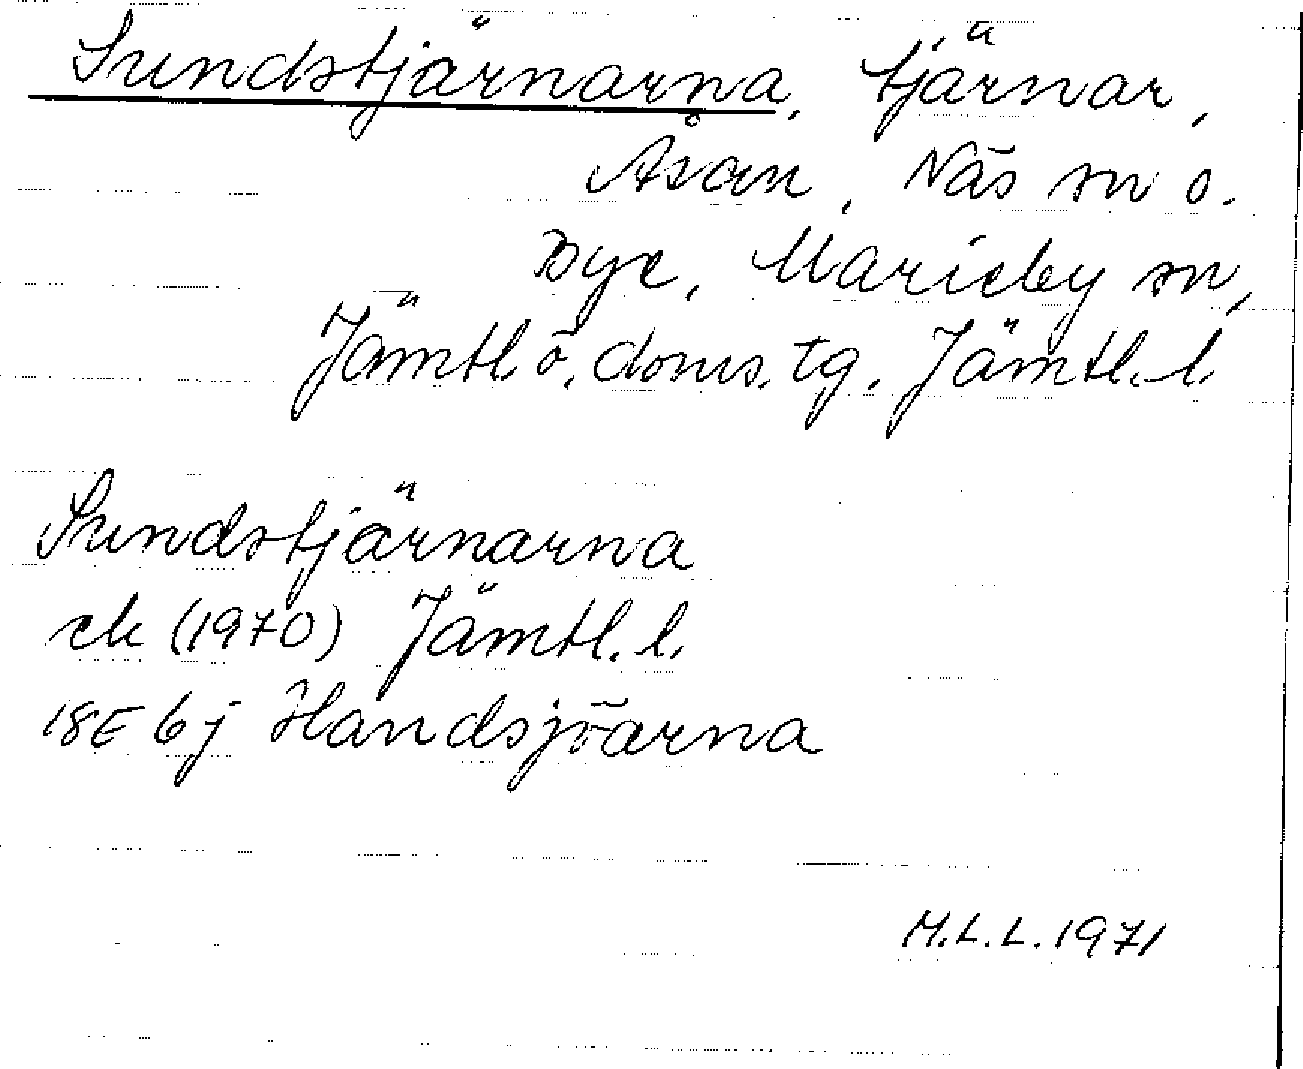 Sundstjärnarna, tjärnar,
Åsan, Näs sn o.
Bye, Marieby sn,
Jämtl. ö. doms. tg. Jämtl. l.
Sundstjärnarna
ek (1970) Jämtl. l.
18E 6j Handsjöarna
M.L.L. 1971